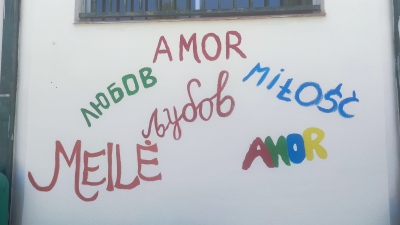 AMOR
ЛЮБОВ
MIŁOŚĆ
љубов
MEILĖ
AMOR